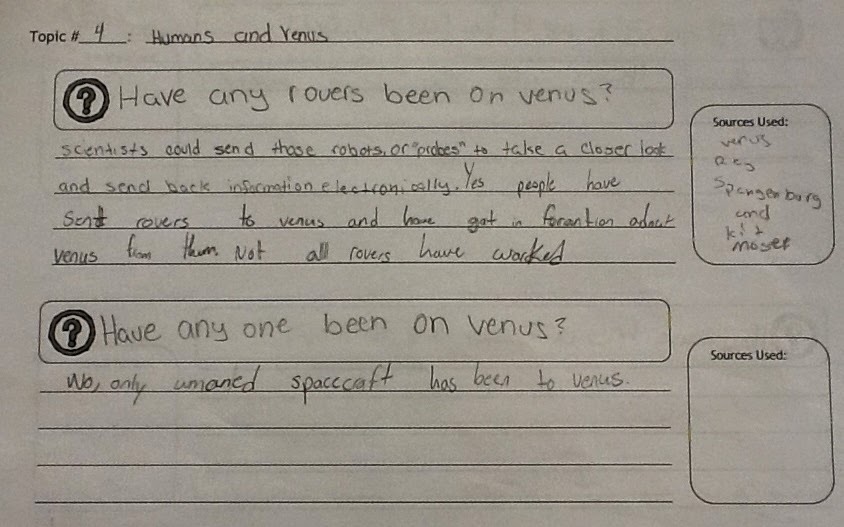 Topic # 4 : Humans and Venus
? Have any rovers been on venus?
scientists could send those robots, or "probes" to take a closer look
and send back information electronically. Yes people have
sent rovers to venus and have got in forantion
venus from them. Not all rovers have worked
Sources Used:
venus
Ray
Spangenburg
and
kit
moser
? Have any one been on venus?
No, only umaned spacecaft has been to venus.
Sources Used: